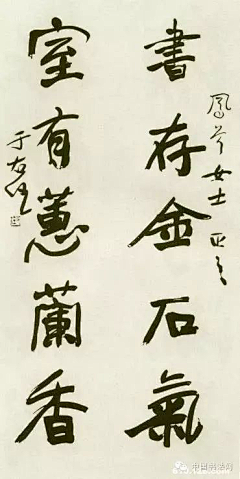 鳳芩女士正之
書存金石氣
室有蕙蘭香
于右任
中国书法网